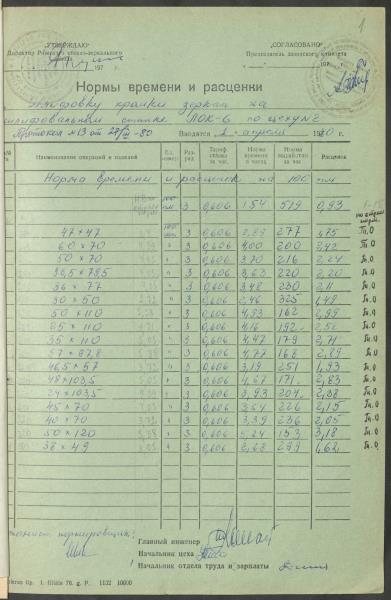 1
„УТВЕРЖДАЮ"
„СОГЛАСОВАНО"
Директор
зеркального
Председатель заводского комитета
197 г.
197 г.
Нормы времени и расценки
шлифовку кромки зеркал на
шлифовальном станке ПОК-6 по цеху №2
Протокол №13 от 27/III-80
Вводятся 1 апреля 1980г.
Наименование операций и изделий
Ед. Раз-ряд Тариф. ставка за час. Норма времени в часах Норма выработки за час Расценки
Норма времени и расценок на 100 пм
100 пм 3 0,606 1.54 519 0,93
47×47 100 3 0,606 2.89 277 1,75 Т.О
60×70 " 3 0,606 4,00 200 2,42 П.О
50×70 " 3 0,606 3.70 216 2,24 П.О
36,5×78,5 " 3 0,606 3,63 220 2,20 П.О
36×77 " 3 0,606 3,48 230 2,11 П.О
30×50 " 3 0,606 2,46 325 1,49 П.О
50×110 " 3 0,606 4,93 162 2,99 П.О
25×110 " 3 0,606 4,16 192 2,52 П.О
35×110 " 3 0,606 4,47 179 2,71 П.О
57×97,8 " 3 0,606 4,77 168 2,89 П.О
46,5×57 " 3 0,606 3,19 251 1,93 П.О
48×103,5 " 3 0,606 4,67 171 2,83 П.О
24×103,5 " 3 0,606 3,93 204 2,38 П.О
45×70 " 3 0,606 3,54 226 2,15 П.О
40×70 " 3 0,606 3,39 236 2,05 П.О
50×120 " 3 0,606 5,24 153 3,18 П.О
38×49 " 3 0,606 2,68 299 1,62 П.О
нормировщик:
Главный инженер
Начальник цеха
Начальник отдела труда и зарплаты
1132 10000